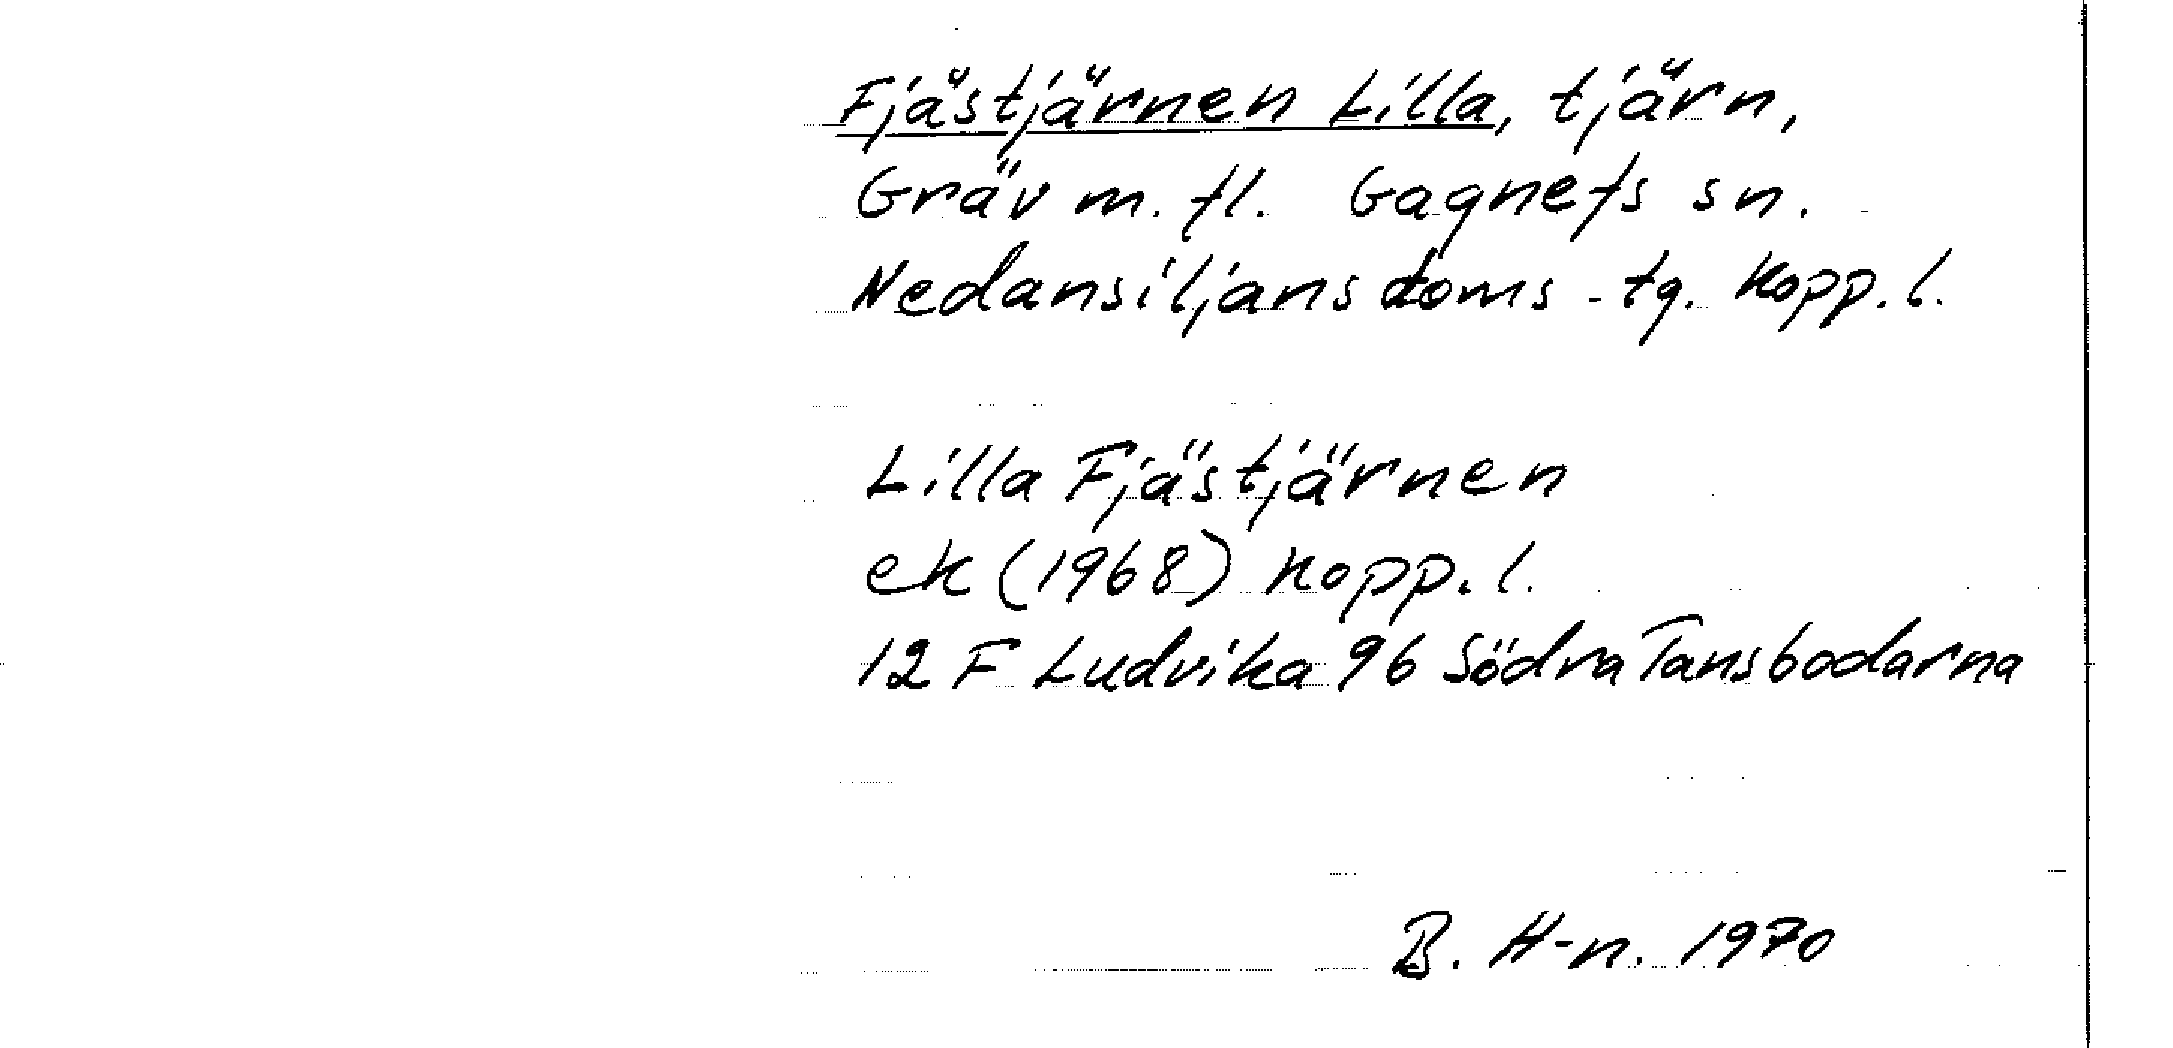 Fjästjärnen Lilla, tjärn,
Gräv m. fl. Gagnefs sn.
Nedansiljans doms - tg. Kopp. l.
Lilla Fjästjärnen
ek (1968) Kopp. l.
12 F Ludvika 9b Södra Tansbodarna
B. H-n. 1970